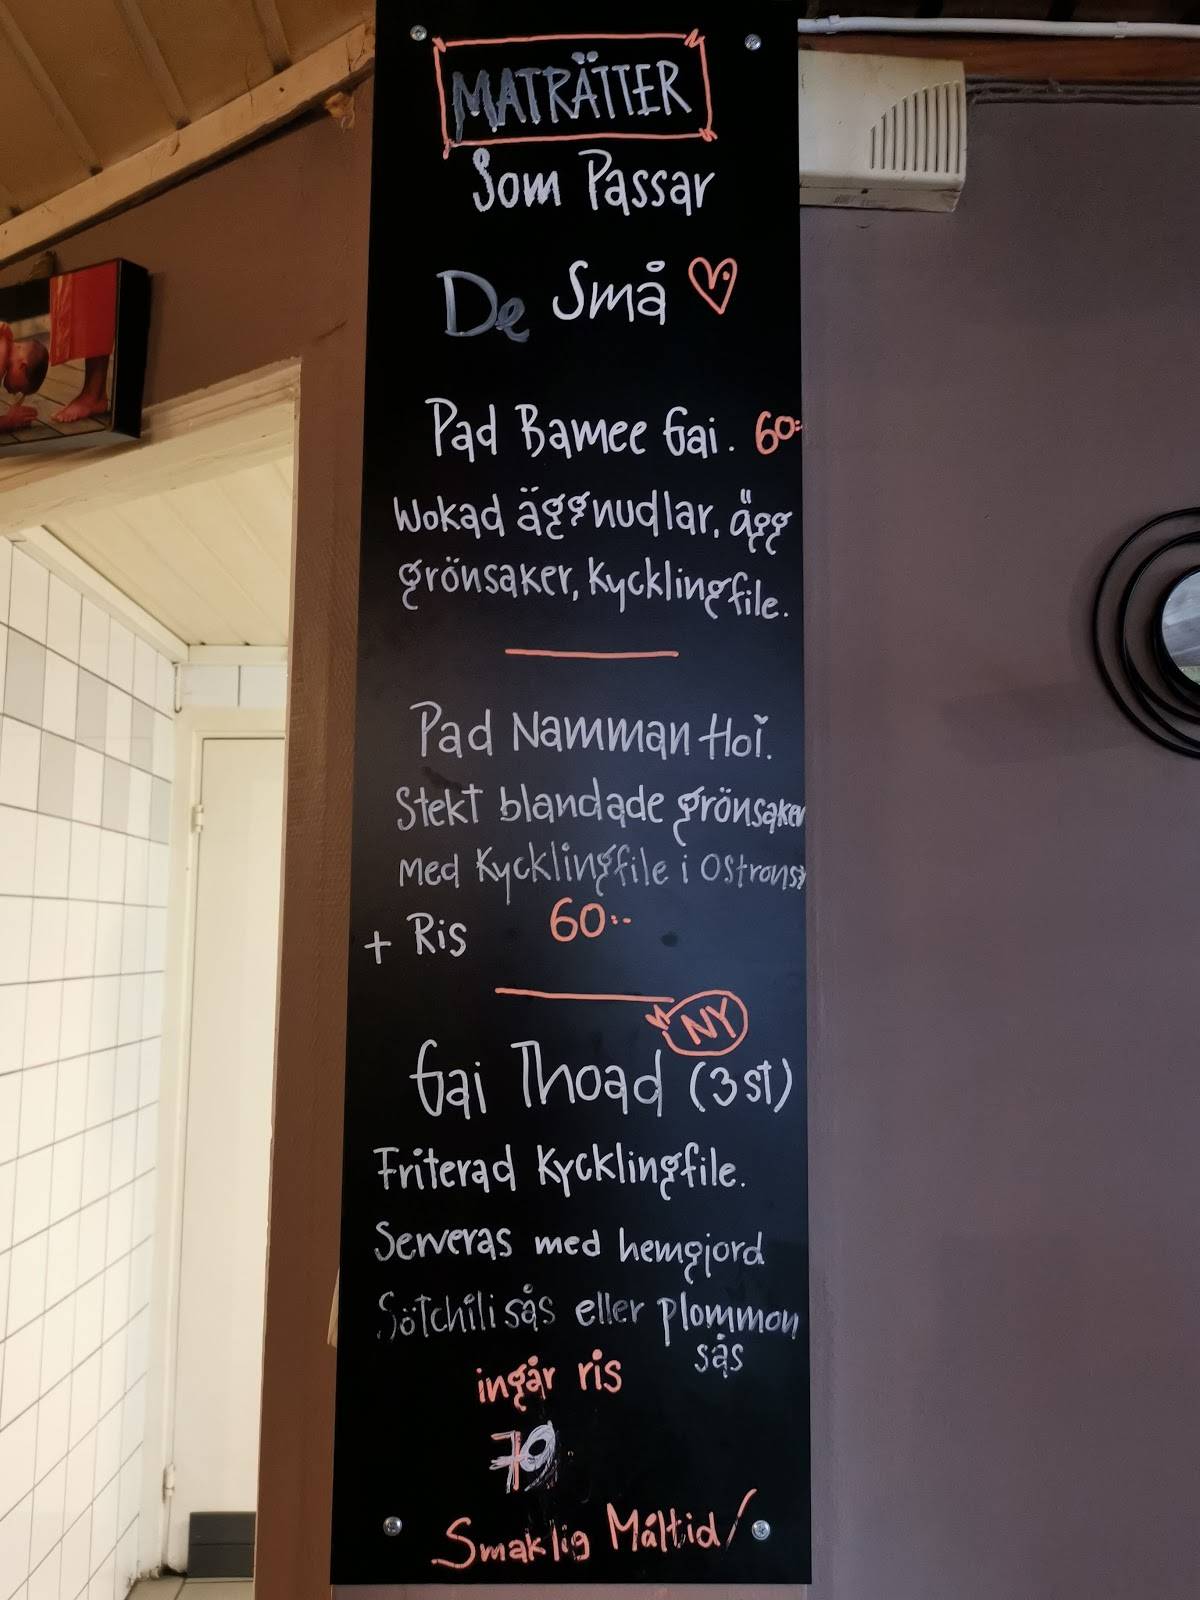 MATRÄTTER
Som Passar
De Små
Pad Bamee Gai. 60:-
Wokad äggnudlar, ägg
grönsaker, Kycklingfile.
Pad Namman Hoi.
Stekt blandade grönsaker
med Kycklingfile i
+ Ris 60:-
NY
Gai Thoad (3st)
Friterad Kycklingfile.
Serveras med hemgjord
Sötchili sås eller plommon
sås
ingår ris
79
Smaklig Måltid/